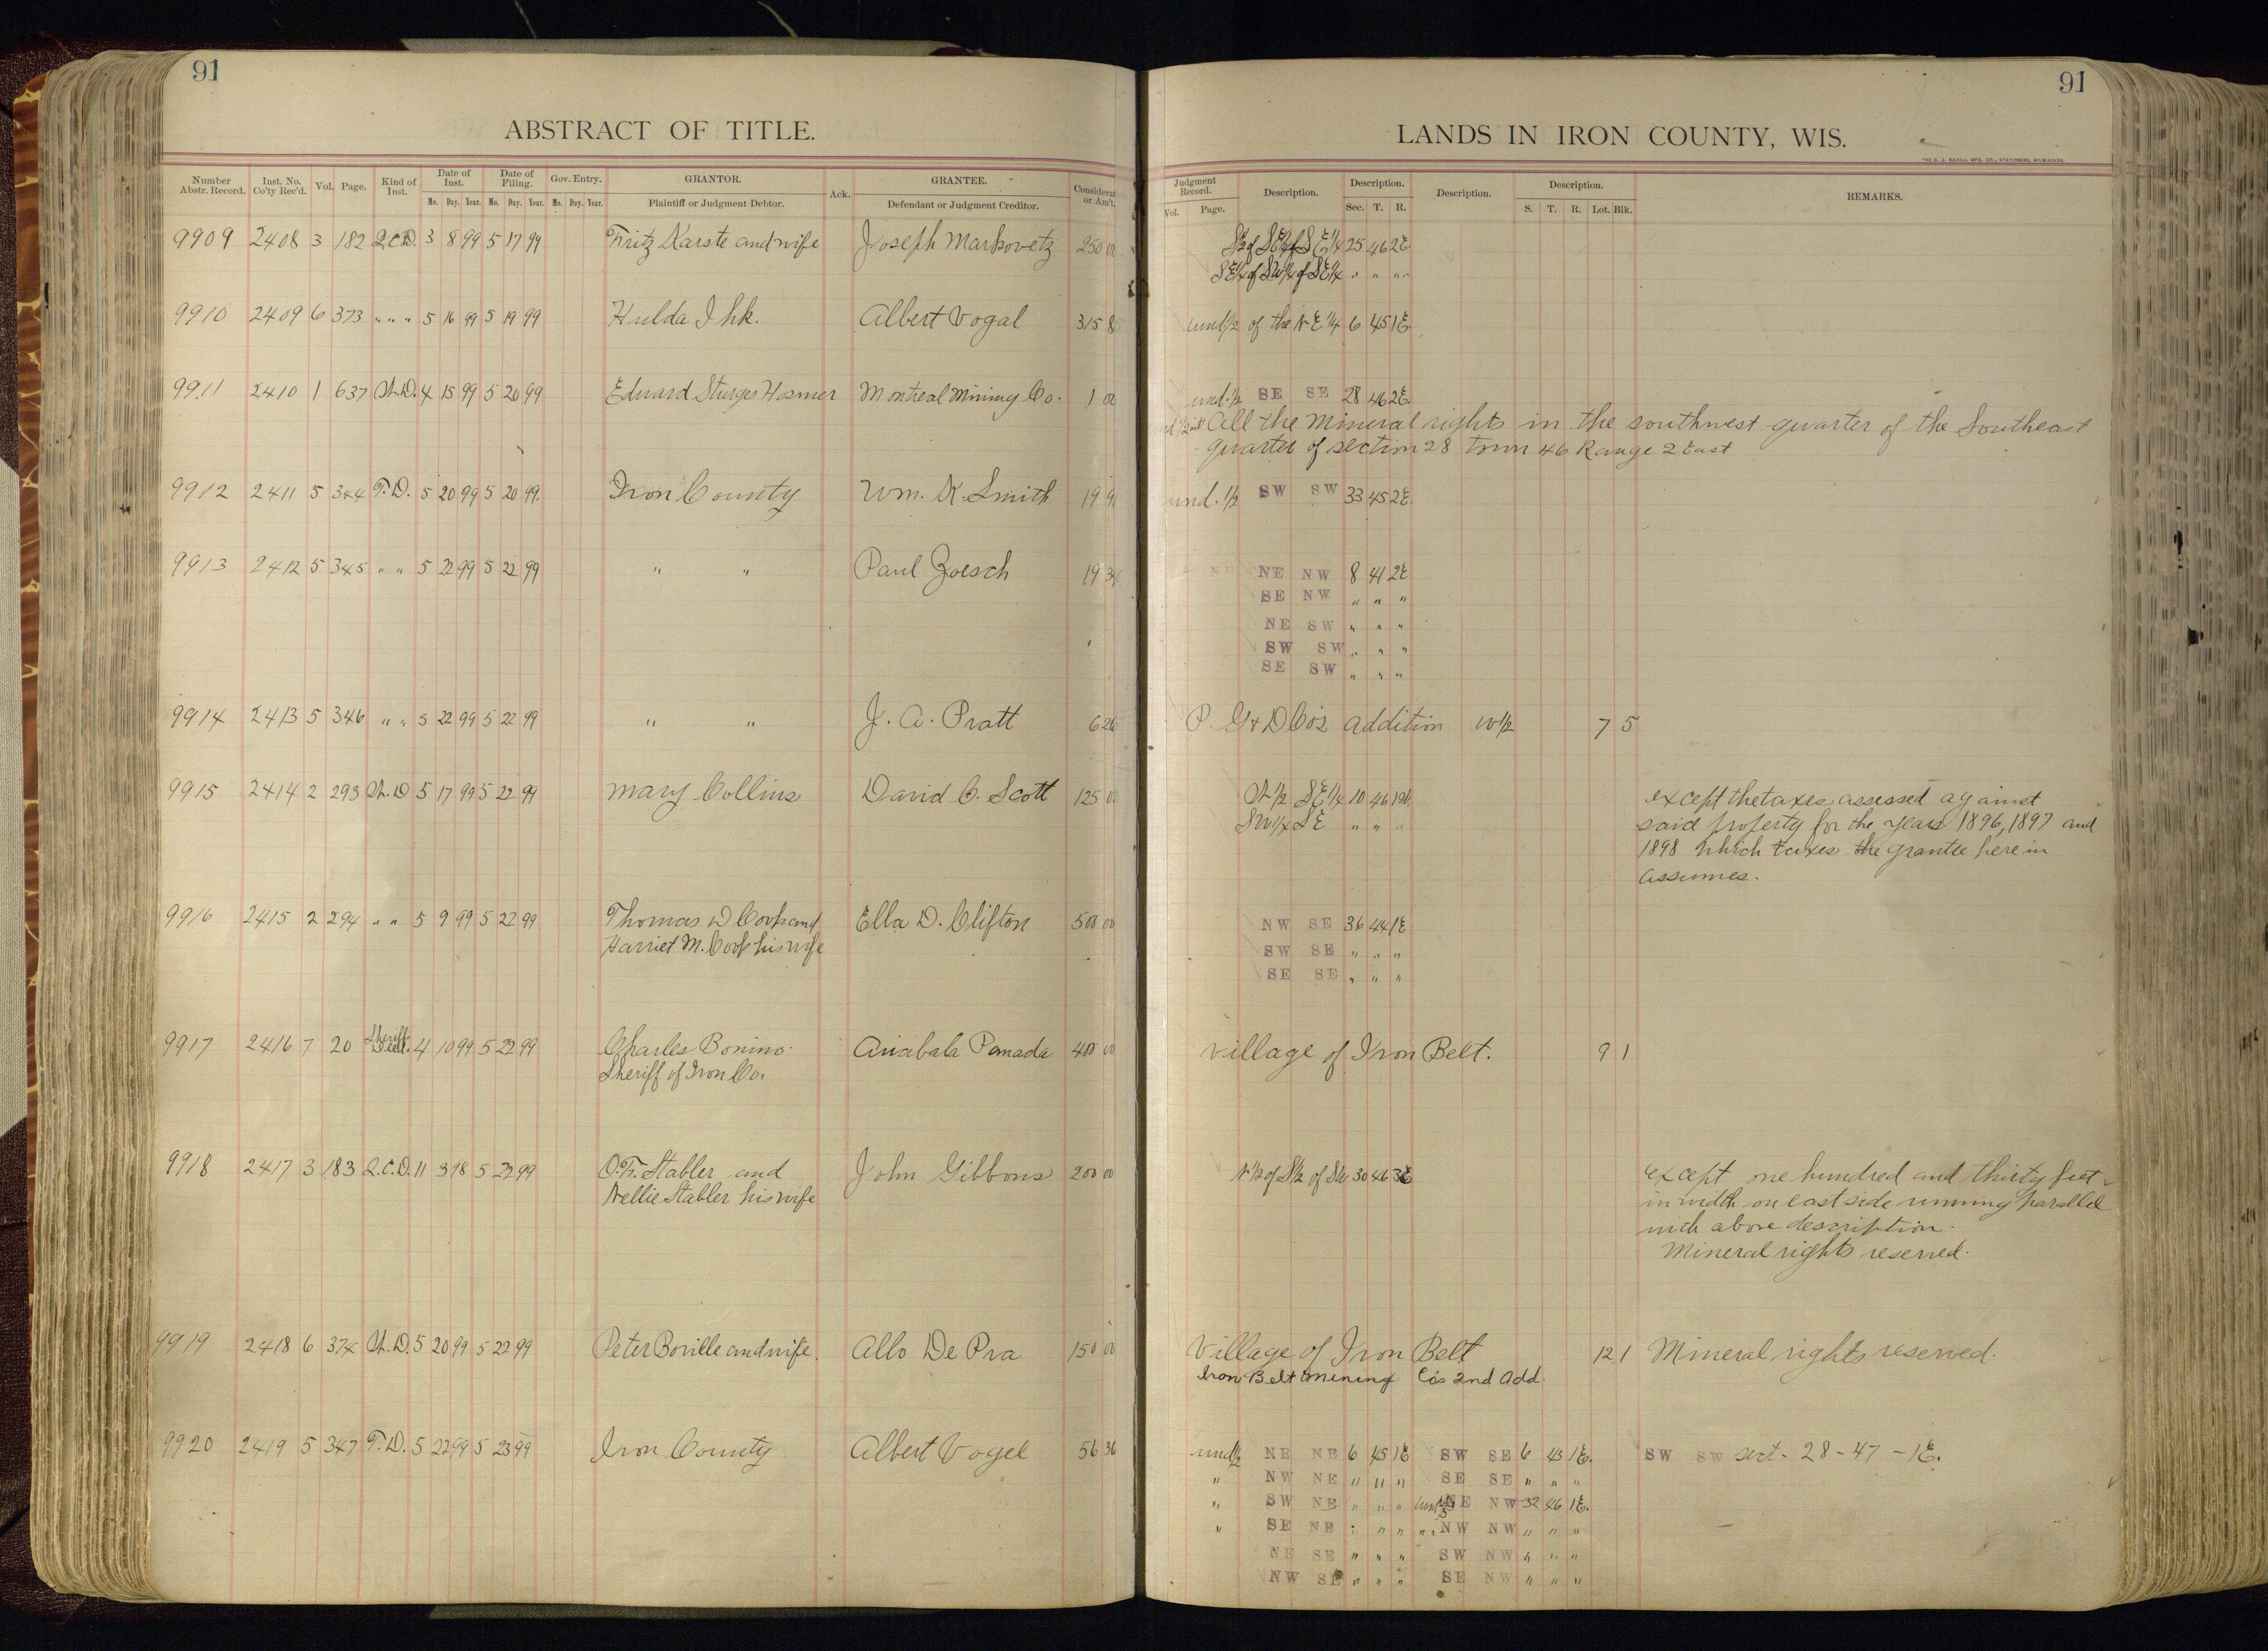 91
ABSTRACT OF TITLE.
Number Abstr. Record. Inst. No. Co'ty Rec'd. Vol. Page. Kind of Inst. Date of Inst. Mo. Day. Year. Date of Filing. Mo. Day. Year. Gov. Entry. Mo. Day. Year. GRANTOR. Plaintiff or Judgment Debtor. Ack. GRANTEE. Defendant or Judgment Creditor. Considerat or Am't.
9909 2408 3 182 Q.C.D. 3 8 99 5 17 99 Fritz Karste and wife Joseph Markovetz 250 00
9910 2409 6 373 " " " 5 16 99 5 19 99 Hulda Ihk. Albert Vogal 315 85
9911 2410 1 637 W.D. 4 15 99 5 20 99 Edward Sturges Hosmer Montreal Mining Co. 1 00
9912 2411 5 344 T.D. 5 20 99 5 20 99 Iron County Wm. K. Smith 19 91
9913 2412 5 345 " " 5 22 99 5 22 99 " " Paul Zoesch 19 34
9914 2413 5 346 " " 5 22 99 5 22 99 " " J. A. Pratt 6 26
9915 2414 2 293 W.D 5 17 99 5 22 99 Mary Collins David C. Scott 125 00
9916 2415 2 294 " " 5 9 99 5 22 99 Thomas D Cook and Ella D. Clifton 500 00
Harriet M. Cook his wife
9917 2416 7 20 Sheriff Deed. 4 10 99 5 22 99 Charles Bonino Panada 400 00
Sheriff of Iron Co.
9918 2417 3 183 Q.C.D. 11 3 98 5 22 99 O.F. Stabler and John Gibbons 200 00
Nellie Stabler his wife
9919 2418 6 374 W.D. 5 20 99 5 22 99 Peter Boville and wife. Allo De Pra 150 00
9920 2419 5 347 T.D. 5 22 99 5 23 99 Iron County Albert Vogel 56 36
91
LANDS IN IRON COUNTY, WIS.
Judgment Record. Vol. Page. Description. Description. Sec. T. R. Description. Description. S. T. R. Lot. Blk. REMARKS.
S½ of SE¼ of SE¼ 25 46 2E
SE¼ of SW¼ of SE¼ " " "
und ½ of the NE ¼ 6 45 1E
und. ½ SE SE 28 46 2E
und ½ int All the mineral rights in the southwest quarter of the Southeast
quarter of section 28 town 46 Range 2 East
und. ½ SW SW 33 45 2E
NE NW 8 41 2E
SE NW " " "
NE SW " " "
SW SW " " "
SE SW " " "
P. G & D Co's addition W ½ 7 5
N ½ SE ¼ 10 46 1W except the taxes assessed against
SW ¼ SE " " " said property for the years 1896, 1897 and
1898 which taxes the grantee herein
assumes.
NW SE 36 44 1E
SW SE " " "
SE SE " " "
Village of Iron Belt. 9 1
N ½ of S½ of SW 30 46 3E except one hundred and thirty feet
in width on east side running parallel
with above description.
Mineral rights reserved.
Village of Iron Belt 12 1 Mineral rights reserved.
Iron Belt Mining Co's 2nd Add.
und½ NE NE 6 45 1E SW SE 6 43 1E. SW SW sect. 28-47-1E.
" NW NE " " " SE SE " " "
" SW NE " " " NE NW 32 46 1E.
" SE NE " " " " " NW NW " " "
NE SE " " " SW NW " " "
NW SE " " " SE NW " " "